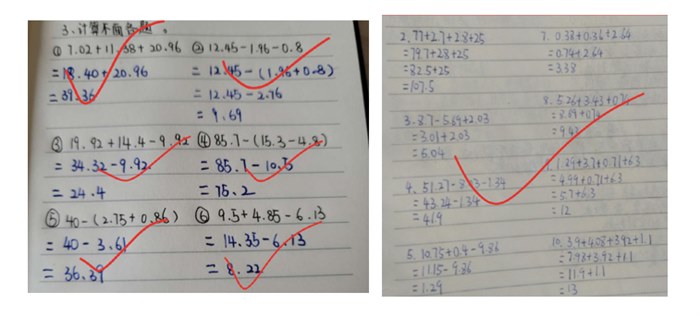 3. 计算下面各题。
① 7.02+11.38+20.96
=18.40+20.96
=39.36
② 12.45-1.96-0.8
=12.45-(1.96+0.8)
=12.45-2.76
=9.69
③ 19.92+14.4-9.92
=34.32-9.92
=24.4
④ 85.7-(15.3-4.8)
=85.7-10.5
=75.2
⑤ 40-(2.75+0.86)
=40-3.61
=36.39
⑥ 9.5+4.85-6.13
=14.35-6.13
=8.22
2. 77+2.7+2.8+25
=79.7+2.8+25
=82.5+25
=107.5
3. 8.7-5.69+2.03
=3.01+2.03
=5.04
4. 51.27-8.03-1.34
=43.24-1.34
=41.9
5. 10.75+0.4-9.86
=11.15-9.86
=1.29
7. 0.38+0.36+2.64
=0.74+2.64
=3.38
8. 5.26+3.43+0.74
=8.69+0.74
=9.43
1.29+3.7+0.71+6.3
=4.99+0.71+6.3
=5.7+6.3
=12
10. 3.9+4.08+3.92+1.1
=7.98+3.92+1.1
=11.9+1.1
=13